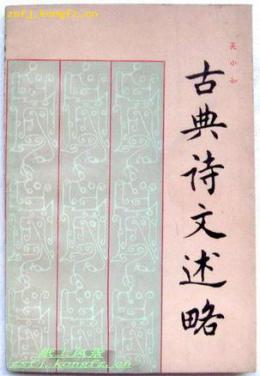 zsfj.kongfz.cn
吴小如
古典诗文述略
zsfj.kongfz.cn